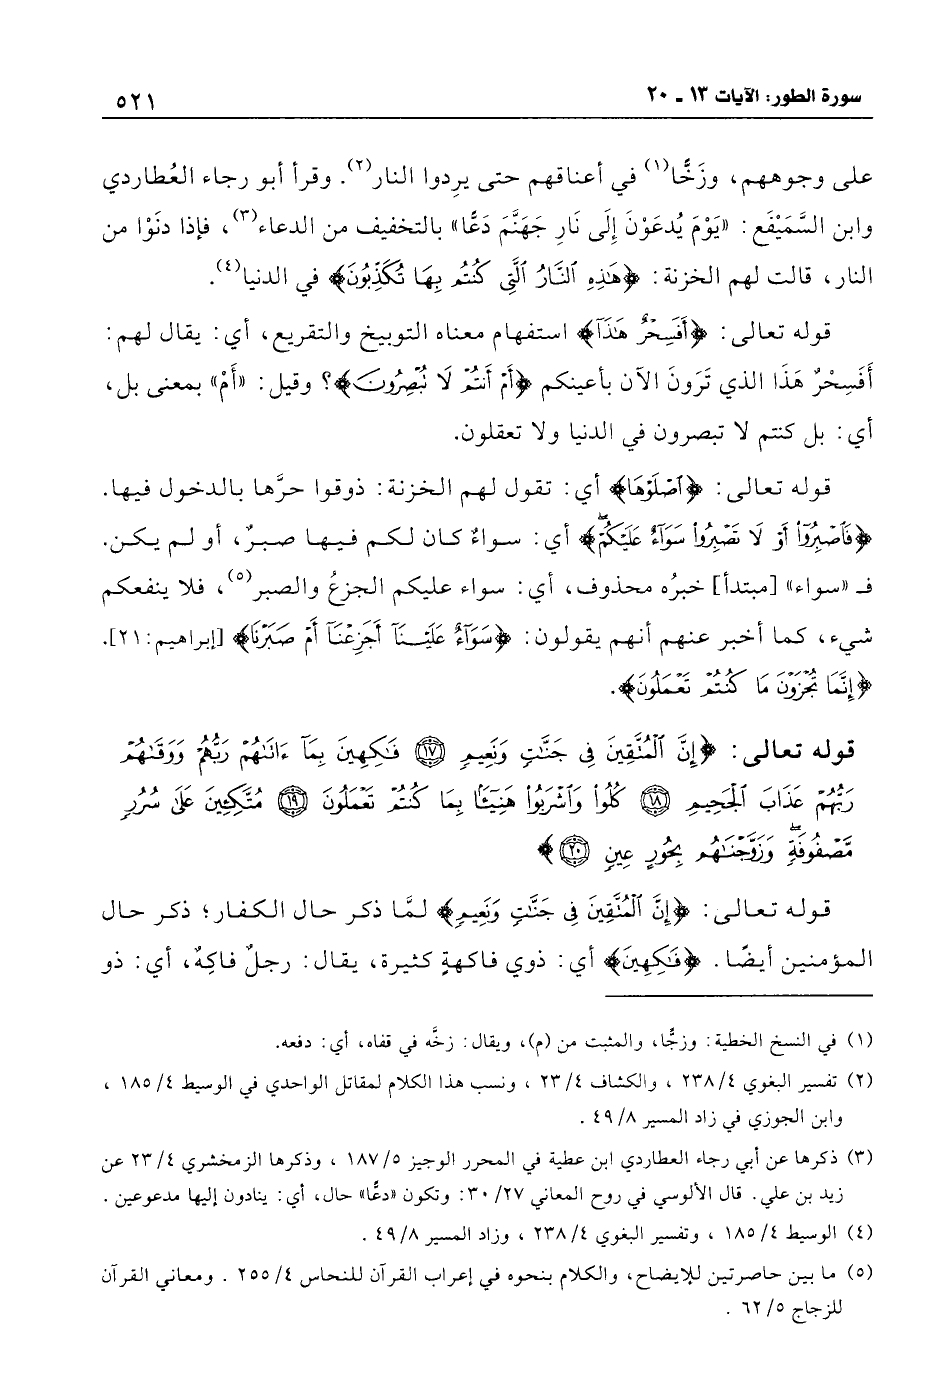 سورة الطور: الآيات ١٣ ـ ٢٠
٥٢١
على وجوههم، وزَخًّا(١) في أعناقهم حتى يرِدوا النار(٢). وقرأ أبو رجاء العُطاردي
وابن السَّمَيْفَع: «يَوْمَ يُدعَوْنَ إِلَى نَارِ جَهَنَّمَ دَعًّا» بالتخفيف من الدعاء(٣)، فإذا دنَوْا من
النار، قالت لهم الخزنة: ﴿هَٰذِهِ ٱلنَّارُ ٱلَّتِى كُنتُم بِهَا تُكَذِّبُونَ﴾ في الدنيا(٤).
قوله تعالى: ﴿أَفَسِحْرٌ هَٰذَآ﴾ استفهام معناه التوبيخ والتقريع، أي: يقال لهم:
أَفَسِحْرٌ هَذَا الذي تَرَونَ الآن بأعينكم ﴿أَمْ أَنتُمْ لَا تُبْصِرُونَ﴾؟ وقيل: «أَمْ» بمعنى بل،
أي: بل كنتم لا تبصرون في الدنيا ولا تعقلون.
قوله تعالى: ﴿ٱصْلَوْهَا﴾ أي: تقول لهم الخزنة: ذوقوا حرَّها بالدخول فيها.
﴿فَٱصْبِرُوٓا۟ أَوْ لَا تَصْبِرُوا۟ سَوَآءٌ عَلَيْكُمْ ۖ﴾ أي: سواءٌ كان لكم فيها صبرٌ، أو لم يكن.
فـ «سواء» [مبتدأ] خبرُه محذوف، أي: سواء عليكم الجزعُ والصبر(٥)، فلا ينفعكم
شيء، كما أخبر عنهم أنهم يقولون: ﴿سَوَآءٌ عَلَيْنَآ أَجَزِعْنَآ أَمْ صَبَرْنَا﴾ [إبراهيم: ٢١].
﴿إِنَّمَا تُجْزَوْنَ مَا كُنتُمْ تَعْمَلُونَ﴾.
قوله تعالى: ﴿إِنَّ ٱلْمُتَّقِينَ فِى جَنَّٰتٍ وَنَعِيمٍ ١٧ فَٰكِهِينَ بِمَآ ءَاتَىٰهُمْ رَبُّهُمْ وَوَقَىٰهُمْ
رَبُّهُمْ عَذَابَ ٱلْجَحِيمِ ١٨ كُلُوا۟ وَٱشْرَبُوا۟ هَنِيٓـًٔۢا بِمَا كُنتُمْ تَعْمَلُونَ ١٩ مُتَّكِـِٔينَ عَلَىٰ سُرُرٍ
مَّصْفُوفَةٍ ۖ وَزَوَّجْنَٰهُم بِحُورٍ عِينٍ ٢٠﴾
قوله تعالى: ﴿إِنَّ ٱلْمُتَّقِينَ فِى جَنَّٰتٍ وَنَعِيمٍ﴾ لمَّا ذكر حال الكفار؛ ذكر حال
المؤمنين أيضًا. ﴿فَٰكِهِينَ﴾ أي: ذوي فاكهةٍ كثيرة، يقال: رجلٌ فاكِهٌ، أي: ذو
(١) في النسخ الخطية: وزجًّا، والمثبت من (م)، ويقال: زخَّه في قفاه، أي: دفعه.
(٢) تفسير البغوي ٢٣٨/٤ ، والكشاف ٢٣/٤ ، ونسب هذا الكلام لمقاتل الواحدي في الوسيط ١٨٥/٤ ،
وابن الجوزي في زاد المسير ٤٩/٨ .
(٣) ذكرها عن أبي رجاء العطاردي ابن عطية في المحرر الوجيز ١٨٧/٥ ، وذكرها الزمخشري ٢٣/٤ عن
زيد بن علي. قال الآلوسي في روح المعاني ٣٠/٢٧ : وتكون «دعًّا» حال، أي: ينادون إليها مدعوعين .
(٤) الوسيط ١٨٥/٤ ، وتفسير البغوي ٢٣٨/٤ ، وزاد المسير ٤٩/٨ .
(٥) ما بين حاصرتين للإيضاح، والكلام بنحوه في إعراب القرآن للنحاس ٢٥٥/٤ . ومعاني القرآن
للزجاج ٦٢/٥ .